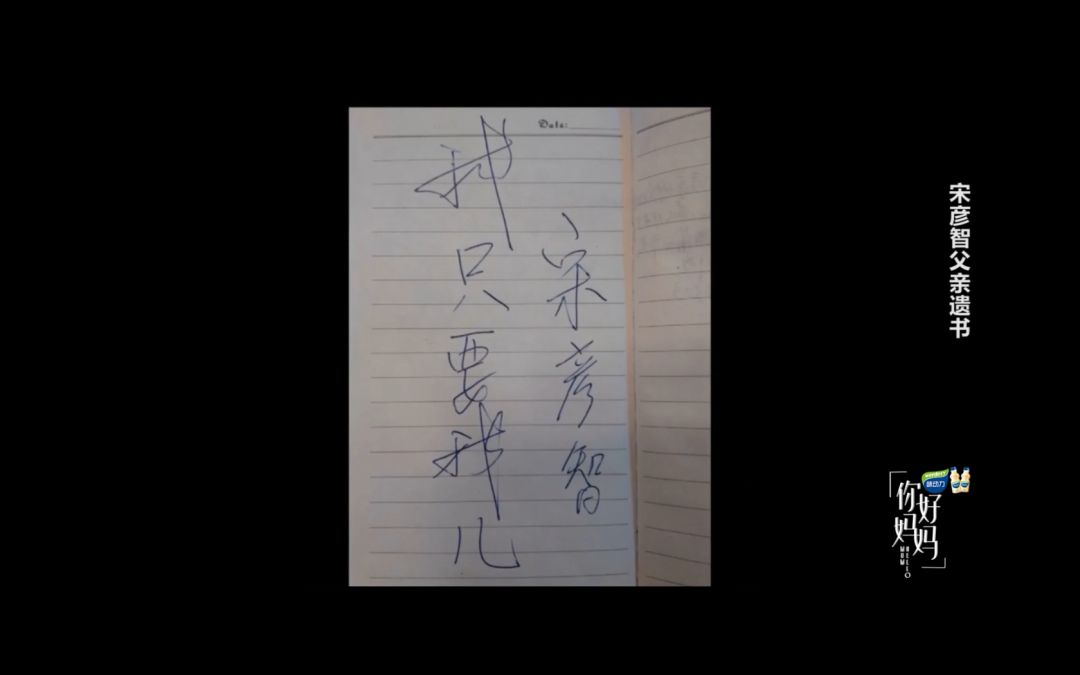 Date:
宋彦智
我只要我儿
宋彦智父亲遗书
味动力
你好
妈妈
HELLO
MUM